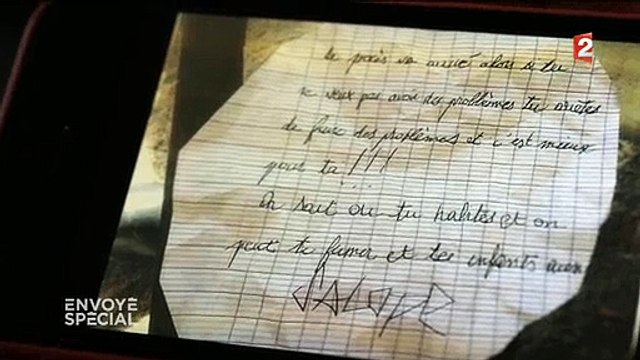 2
Le procès va arrivé alors si tu
ne veux pas avoir des problèmes tu arrêtes
de faire des problèmes et c'est mieux
pour ta !!!
On sait ou tu habites et on
peut te fumer et tes enfants aussi
SALOPE
ENVOYÉ
SPÉCIAL